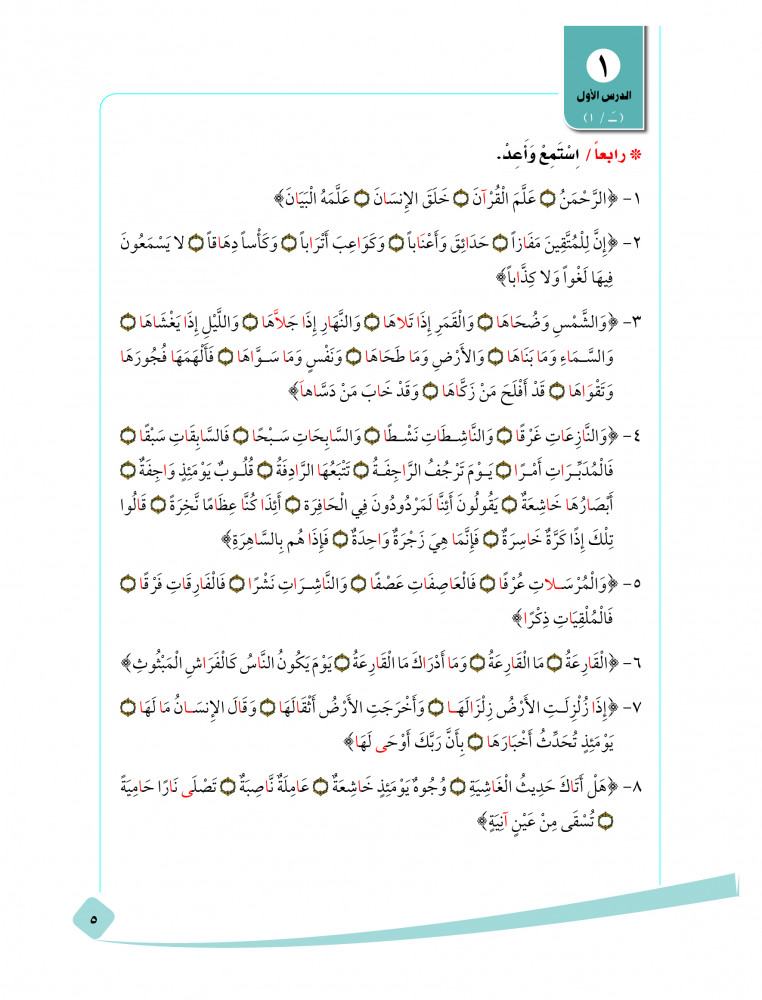 ١
الدرس الأول
(ـَ / ١)
* رابعاً/ اِسْتَمِعْ وَأَعِدْ.
١- ﴿الرَّحْمَنُ ۝ عَلَّمَ الْقُرْآنَ ۝ خَلَقَ الإِنسَانَ ۝ عَلَّمَهُ الْبَيَانَ﴾
٢- ﴿إِنَّ لِلْمُتَّقِينَ مَفَازاً ۝ حَدَائِقَ وَأَعْنَاباً ۝ وَكَوَاعِبَ أَتْرَاباً ۝ وَكَأْساً دِهَاقاً ۝ لا يَسْمَعُونَ
فِيهَا لَغْواً وَلا كِذَّاباً﴾
٣- ﴿وَالشَّمْسِ وَضُحَاهَا ۝ وَالْقَمَرِ إِذَا تَلاهَا ۝ وَالنَّهَارِ إِذَا جَلاَّهَا ۝ وَاللَّيْلِ إِذَا يَغْشَاهَا ۝
وَالسَّمَاءِ وَمَا بَنَاهَا ۝ وَالأَرْضِ وَمَا طَحَاهَا ۝ وَنَفْسٍ وَمَا سَوَّاهَا ۝ فَأَلْهَمَهَا فُجُورَهَا
وَتَقْوَاهَا ۝ قَدْ أَفْلَحَ مَنْ زَكَّاهَا ۝ وَقَدْ خَابَ مَنْ دَسَّاهاَ﴾
٤- ﴿وَالنَّازِعَاتِ غَرْقًا ۝ وَالنَّاشِطَاتِ نَشْطًا ۝ وَالسَّابِحَاتِ سَبْحًا ۝ فَالسَّابِقَاتِ سَبْقًا ۝
فَالْمُدَبِّرَاتِ أَمْرًا ۝ يَوْمَ تَرْجُفُ الرَّاجِفَةُ ۝ تَتْبَعُهَا الرَّادِفَةُ ۝ قُلُوبٌ يَوْمَئِذٍ وَاجِفَةٌ ۝
أَبْصَارُهَا خَاشِعَةٌ ۝ يَقُولُونَ أَئِنَّا لَمَرْدُودُونَ فِي الْحَافِرَةِ ۝ أَئِذَا كُنَّا عِظَامًا نَّخِرَةً ۝ قَالُوا
تِلْكَ إِذًا كَرَّةٌ خَاسِرَةٌ ۝ فَإِنَّمَا هِيَ زَجْرَةٌ وَاحِدَةٌ ۝ فَإِذَا هُم بِالسَّاهِرَةِ﴾
٥- ﴿وَالْمُرْسَلاتِ عُرْفًا ۝ فَالْعَاصِفَاتِ عَصْفًا ۝ وَالنَّاشِرَاتِ نَشْرًا ۝ فَالْفَارِقَاتِ فَرْقًا ۝
فَالْمُلْقِيَاتِ ذِكْرًا﴾
٦- ﴿الْقَارِعَةُ ۝ مَا الْقَارِعَةُ ۝ وَمَا أَدْرَاكَ مَا الْقَارِعَةُ ۝ يَوْمَ يَكُونُ النَّاسُ كَالْفَرَاشِ الْمَبْثُوثِ﴾
٧- ﴿إِذَا زُلْزِلَتِ الأَرْضُ زِلْزَالَهَا ۝ وَأَخْرَجَتِ الأَرْضُ أَثْقَالَهَا ۝ وَقَالَ الإِنسَانُ مَا لَهَا ۝
يَوْمَئِذٍ تُحَدِّثُ أَخْبَارَهَا ۝ بِأَنَّ رَبَّكَ أَوْحَى لَهَا﴾
٨- ﴿هَلْ أَتَاكَ حَدِيثُ الْغَاشِيَةِ ۝ وُجُوهٌ يَوْمَئِذٍ خَاشِعَةٌ ۝ عَامِلَةٌ نَّاصِبَةٌ ۝ تَصْلَى نَارًا حَامِيَةً
۝ تُسْقَى مِنْ عَيْنٍ آنِيَةٍ﴾
٥